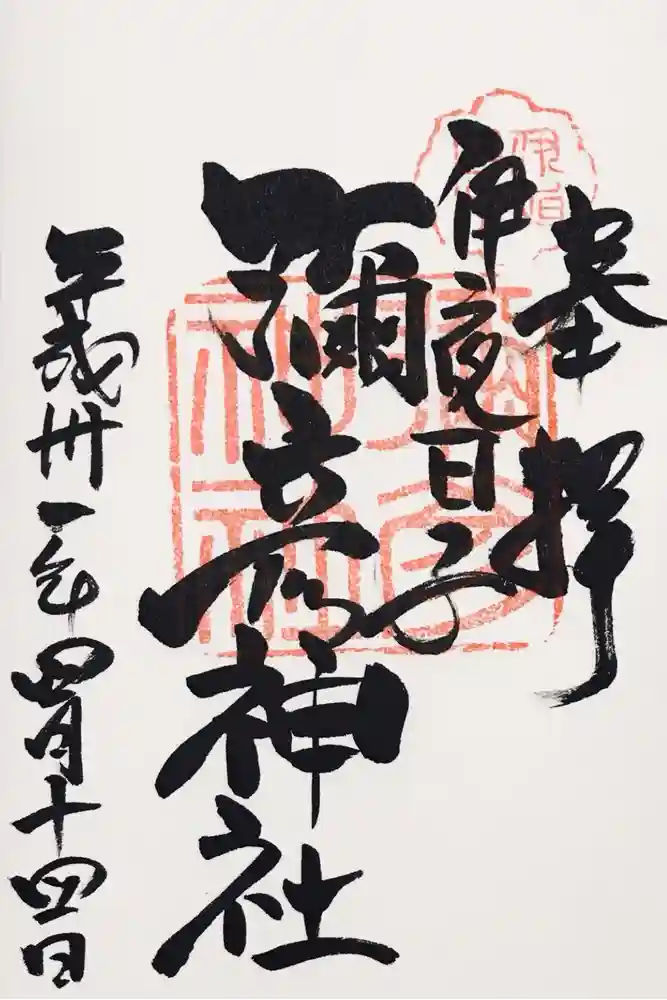 奉拝
伊夜日子
彌彦神社
平成卅一年四月十四日
彌彦
神社